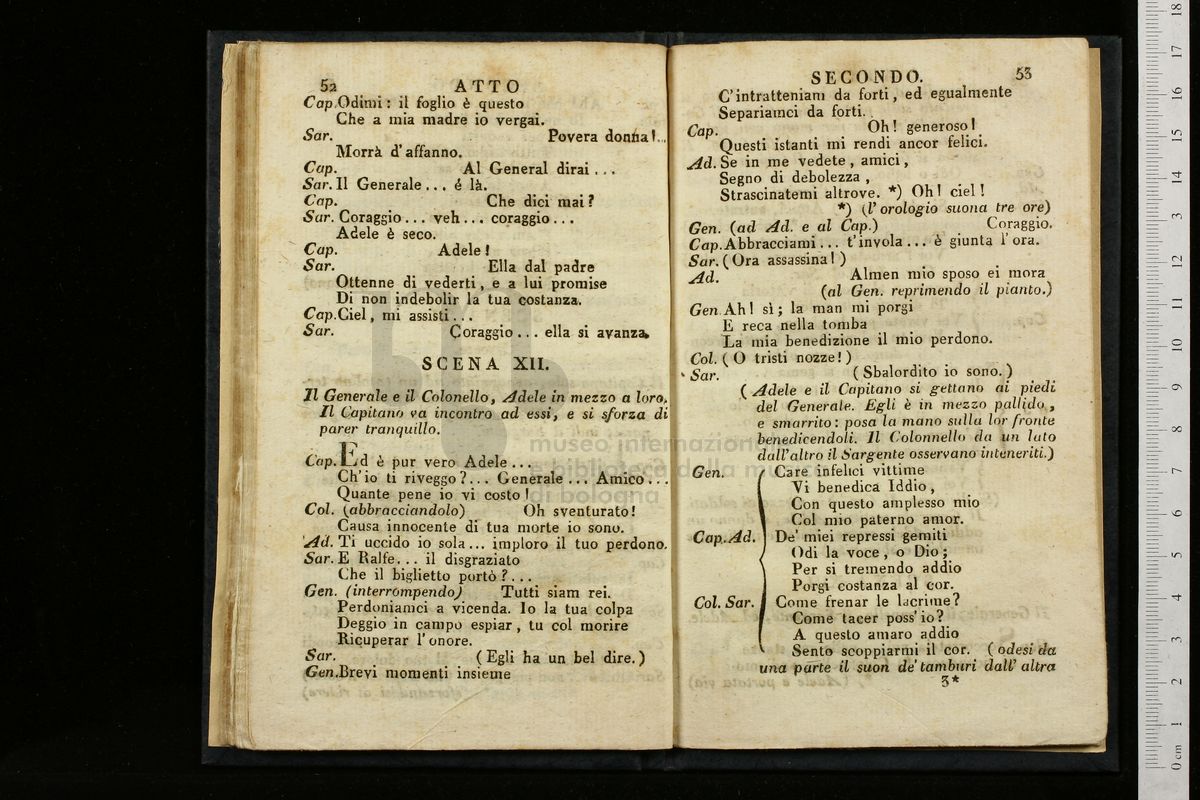 52 ATTO
Cap. Odimi : il foglio è questo
Che a mia madre io vergai.
Sar. Povera donna!...
Morrà d'affanno.
Cap. Al General dirai...
Sar. Il Generale... é là.
Cap. Che dici mai?
Sar. Coraggio... veh... coraggio...
Adele è seco.
Cap. Adele!
Sar. Ella dal padre
Ottenne di vederti, e a lui promise
Di non indebolir la tua costanza.
Cap. Ciel, mi assisti...
Sar. Coraggio... ella si avanza.
SCENA XII.
Il Generale e il Colonello, Adele in mezzo a loro.
Il Capitano va incontro ad essi, e si sforza di
parer tranquillo.
Cap. Ed è pur vero Adele...
Ch'io ti riveggo?... Generale... Amico...
Quante pene io vi costo!
Col. (abbracciandolo) Oh sventurato!
Causa innocente di tua morte io sono.
Ad. Ti uccido io sola... imploro il tuo perdono.
Sar. E Ralfe... il disgraziato
Che il biglietto portò?...
Gen. (interrompendo) Tutti siam rei.
Perdoniamci a vicenda. Io la tua colpa
Deggio in campo espiar, tu col morire
Ricuperar l'onore.
Sar. (Egli ha un bel dire.)
Gen. Brevi momenti insieme
SECONDO. 53
C'intratteniam da forti, ed egualmente
Separiamci da forti.
Cap. Oh! generoso!
Questi istanti mi rendi ancor felici.
Ad. Se in me vedete, amici,
Segno di debolezza,
Strascinatemi altrove. *) Oh! ciel!
*) (l'orologio suona tre ore)
Gen. (ad Ad. e al Cap.) Coraggio.
Cap. Abbracciami... t'invola... è giunta l'ora.
Sar. (Ora assassina!)
Ad. Almen mio sposo ei mora
(al Gen. reprimendo il pianto.)
Gen. Ah! sì; la man mi porgi
E reca nella tomba
La mia benedizione il mio perdono.
Col. (O tristi nozze!)
Sar. (Sbalordito io sono.)
(Adele e il Capitano si gettano ai piedi
del Generale. Egli è in mezzo pallido,
e smarrito: posa la mano sulla lor fronte
benedicendoli. Il Colonnello da un lato
dall'altro il Sargente osservano inteneriti.)
Gen. Care infelici vittime
Vi benedica Iddio,
Con questo amplesso mio
Col mio paterno amor.
Cap. Ad. De' miei repressi gemiti
Odi la voce, o Dio;
Per si tremendo addio
Porgi costanza al cor.
Col. Sar. Come frenar le lacrime?
Come tacer poss'io?
A questo amaro addio
Sento scoppiarmi il cor. (odesi da
una parte il suon de' tamburi dall'altra
3*
museo internazionale
e biblioteca della musica
di bologna
0 cm 1 2 3 4 5 6 7 8 9 10 11 12 13 14 15 16 17 18